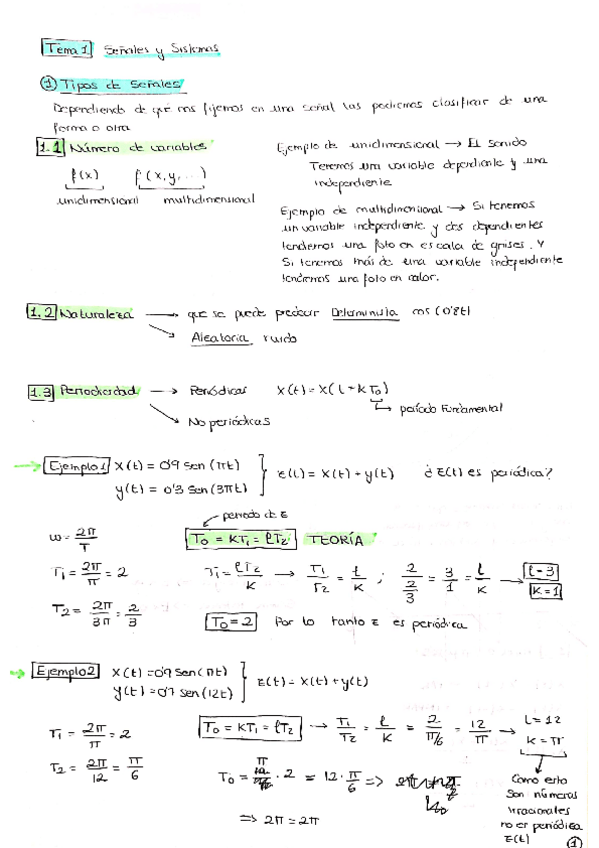 Tema 1 Señales y Sistemas
① Tipos de señales
Dependiendo de qué nos fijemos en una señal las podremos clasificar de una
forma o otra
1.1 Número de variables
f(x) f(x,y,...)
unidimensional multidimensional
Ejemplo de unidimensional → El sonido
Tenemos una variable dependiente y una
independiente
Ejemplo de multidimensional → Si tenemos
un variable independiente y dos dependientes
tendremos una foto en escala de grises. Y
Si tenemos más de una variable independiente
tendremos una foto en color.
1.2 Naturaleza → que se puede predecir Determinista cos(0'8t)
→ Aleatoria ruido
1.3 Periodicidad → Periódicas x(t) = x(t + kT₀)
→ período Fundamental
→ No periódicas
→ Ejemplo 1 x(t) = 0'9 sen(πt)
y(t) = 0'3 sen(3πt)
z(t) = x(t) + y(t) ¿z(t) es periódica?
periodo de z
ω = 2π/T
T₀ = KT₁ = ℓT₂ TEORÍA
T₁ = 2π/π = 2
T₁ = ℓT₂/K → T₁/T₂ = ℓ/K ; 2/(2/3) = 3/1 = ℓ/K → ℓ = 3
K = 1
T₂ = 2π/3π = 2/3
T₀ = 2 Por lo tanto z es periódica
→ Ejemplo 2 x(t) = 0'9 sen(πt)
y(t) = 0'7 sen(12t)
z(t) = x(t) + y(t)
T₁ = 2π/π = 2
T₀ = KT₁ = ℓT₂ → T₁/T₂ = ℓ/K = 2/(π/6) = 12/π → ℓ = 12
K = π
T₂ = 2π/12 = π/6
T₀ = π · 2 = 12 · π/6 ⇒
⇒ 2π = 2π
Como esto
son números
irracionales
no es periódica
z(t)
①